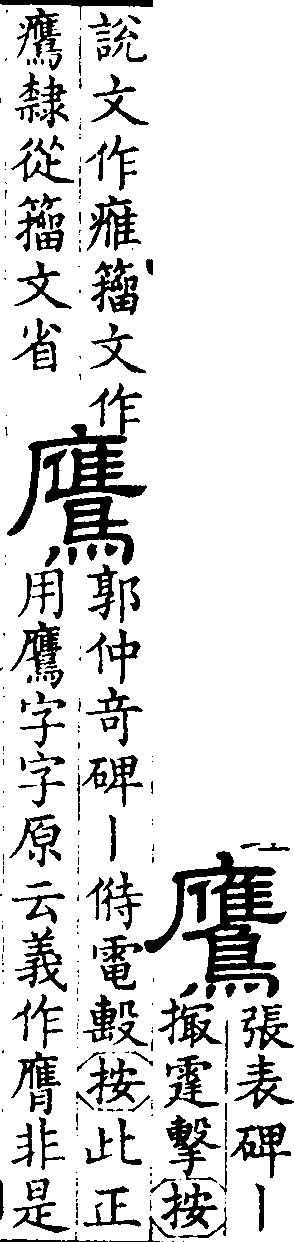 鷹
張表碑丨
掫霆擊按
說文作𤸰籀文作
隸從籀文省
鷹
郭仲竒碑丨偫電毄按此正
用鷹字字原云義作膺非是